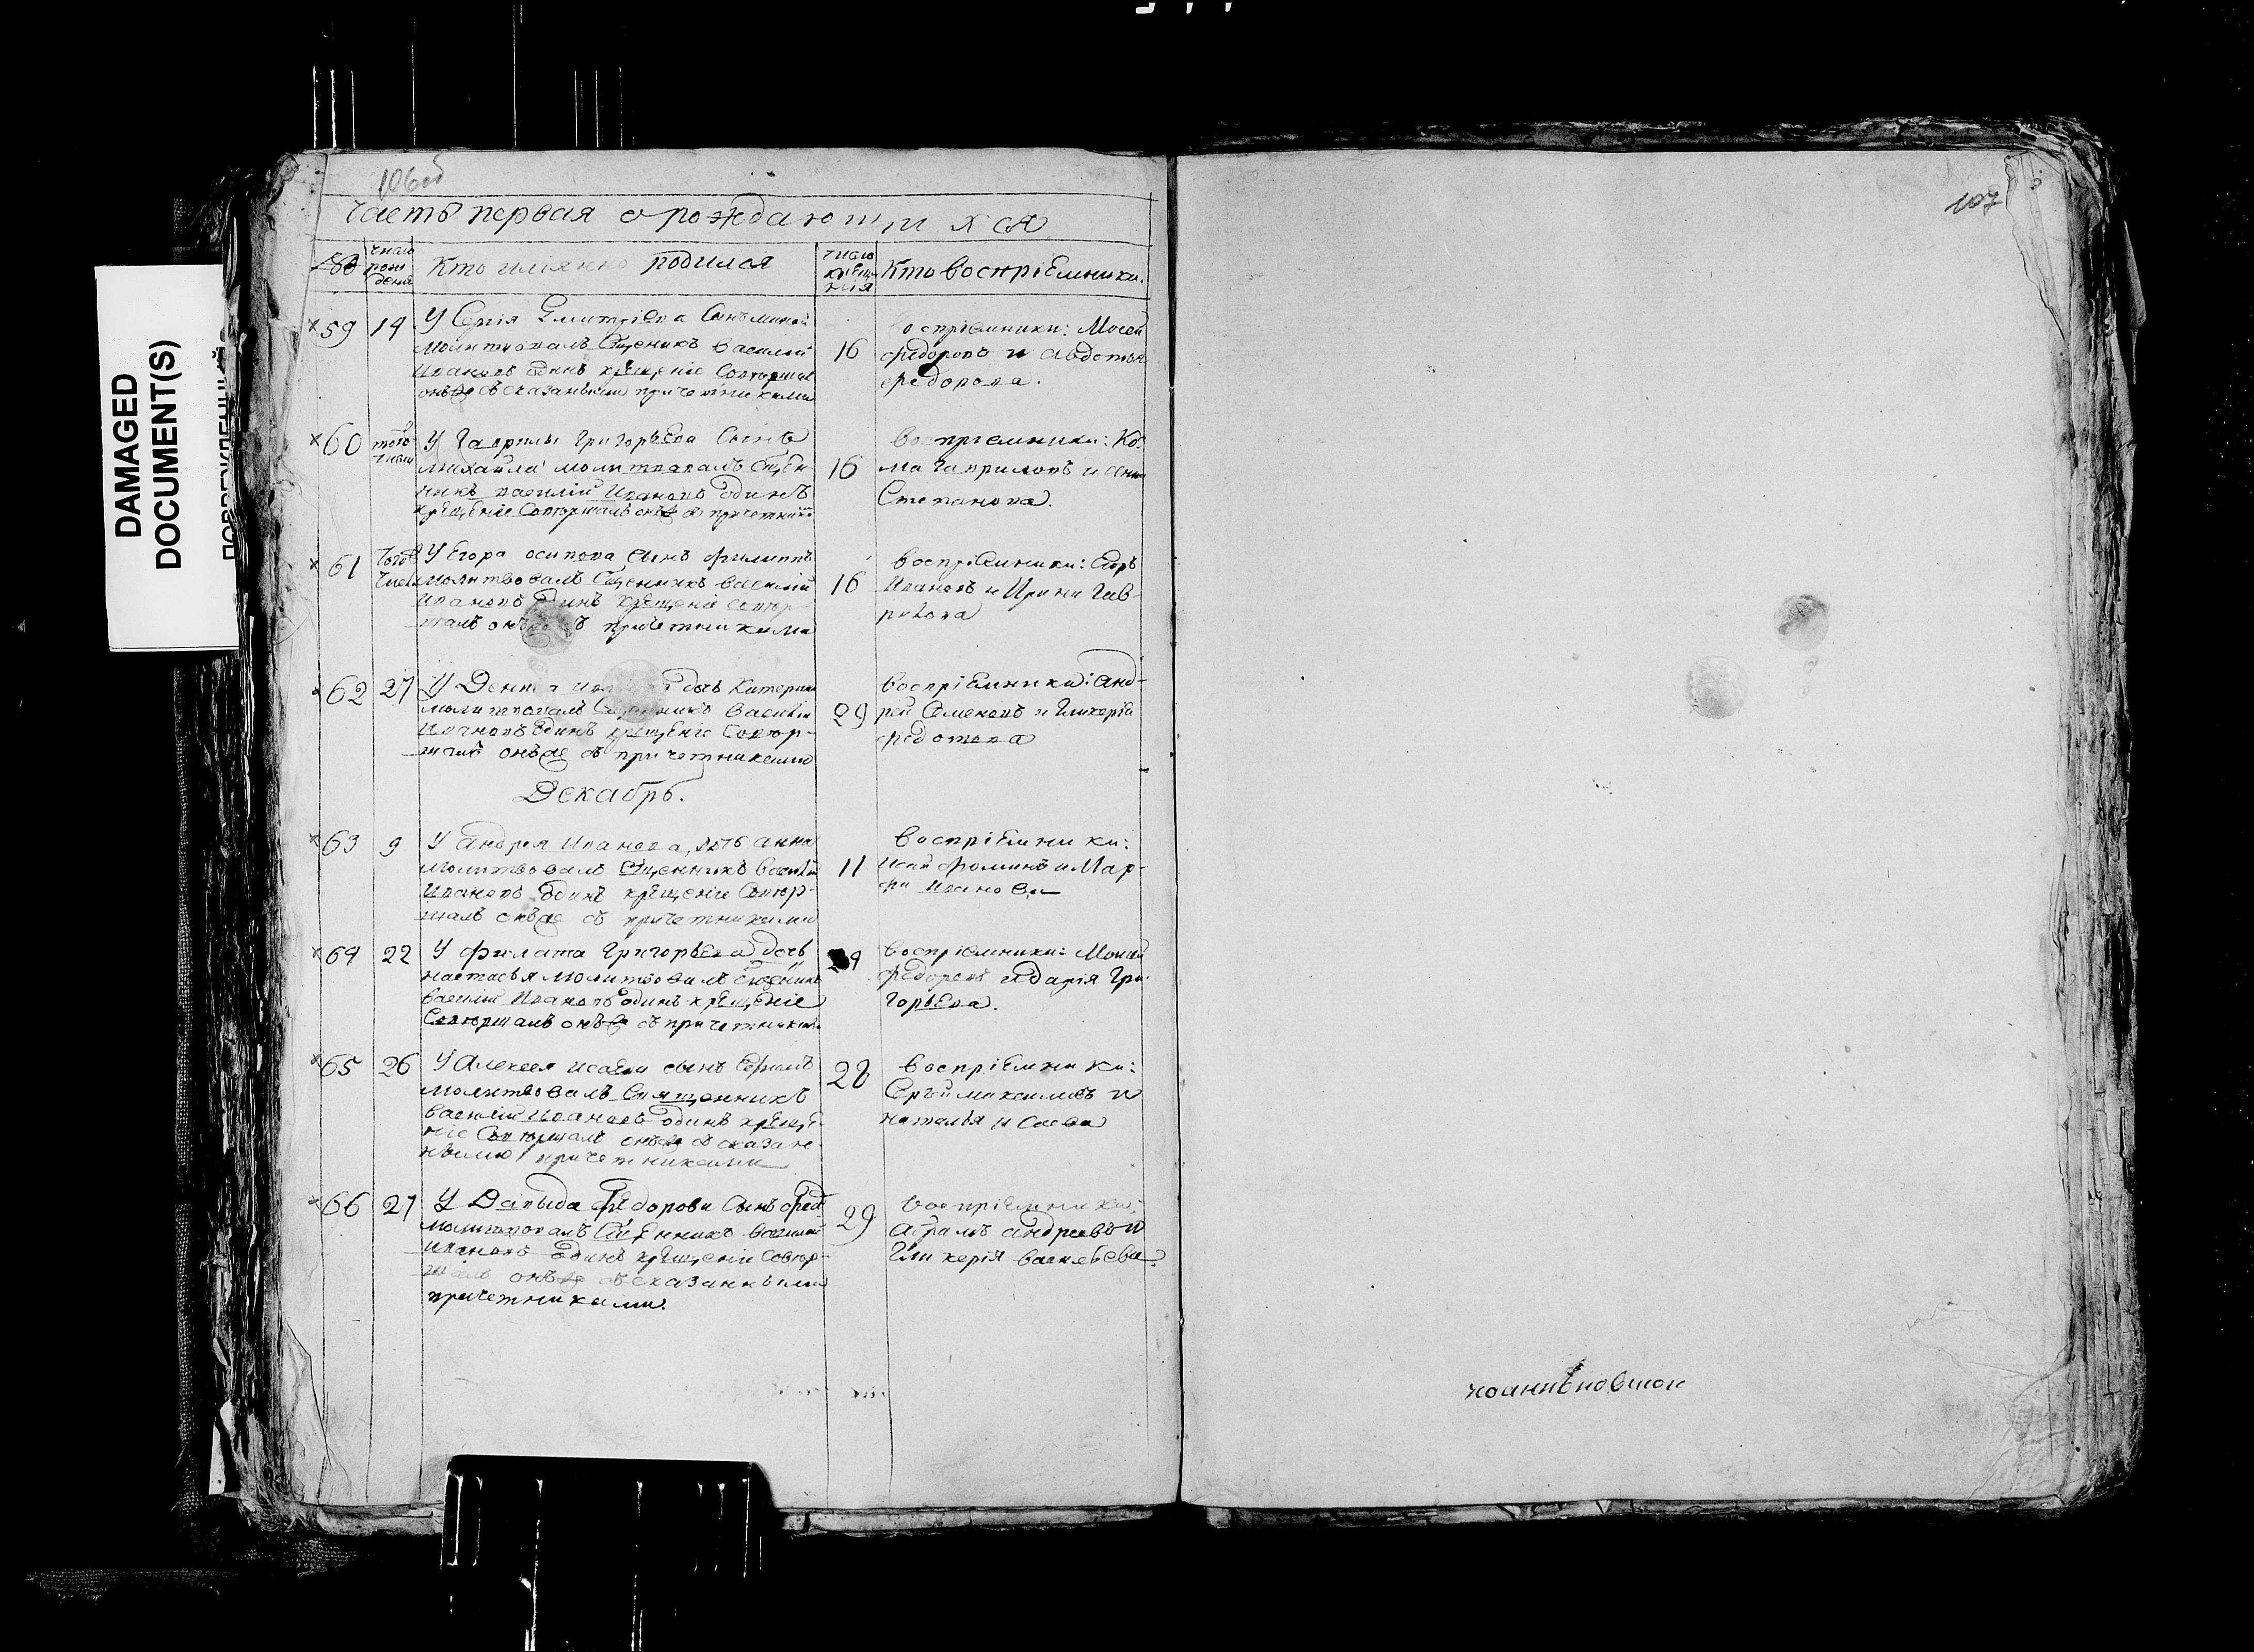 DAMAGED
DOCUMENT(S)
106 об
107
часть первая о рождающихся
№
число рождения
Кто имянно родился
число крещения
Кто воспріемники.
59 14 16
У Сергія Дмитріева Сынъ
молитвовалъ Сщеникъ василій
Ивановъ одинъ крещеніе Совершал
онъ же съ сказаными причетниками
воспріемники: Мосей
федоровъ и авдотья
федорова.
60 того числа 16
У Гаврилы григорьева Сынъ
михайла молитвовалъ Сщен
никъ василій Ивановъ одинъ
крещеніе Совершалъ онъ же съ причетники
воспріемники:
ма гавриловъ и
Степанова.
61 того числа 16
У Егора осипова сынъ филиппъ
молитвовалъ Сщенникъ василій
Ивановъ одинъ крещеніе совер-
шалъ онъ же съ причетниками
воспріемники: Егоръ
Ивановъ и Ирина Гав-
рилова
62 27 29
У дочь Катерина
молитвовалъ Сщенникъ василій
Ивановъ одинъ крещеніе Совер-
шалъ онъ же съ причетниками
воспріемники: анд-
рей Семеновъ и Гликерія
федотова
Декабрь.
63 9 11
У андрея Иванова, дочь анна
молитвовалъ Сщенникъ василій
Ивановъ одинъ крещеніе Совер-
шалъ онъ же съ причетниками
воспріемники:
Исай фоминъ и Мар-
фа Иванова
64 22
У филата Григорьева дочь
настасья молитвовалъ Сщенникъ
василій Ивановъ одинъ крещеніе
Совершалъ онъ же съ причетниками
воспріемники:
федоровъ и дарія Гри-
горьева.
65 26 28
У Алексея исаева сынъ
молитвовалъ Священникъ
василій Ивановъ одинъ креще
ніе Совершалъ онъ же съ сказан-
ными причетниками
воспріемники:
Сергей максимовъ и
наталья Исаева
66 27 29
У Давыда Федорова Сынъ
молитвовалъ Сщенникъ василій
Ивановъ одинъ крещеніе Совер-
шалъ онъ же съ сказанными
причетниками.
воспріемники:
абрамъ андреевъ и
Гликерія васильева